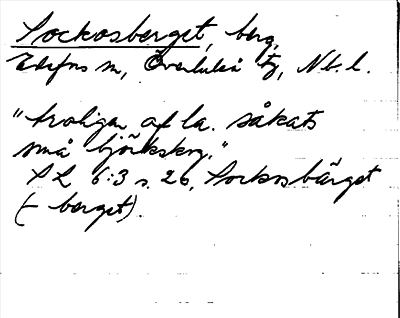 Sockosberget, berg,
Edefors sn, Överluleå tg, Nb. l.
"troligen af la. såkats
små björkskog."
SL 6:3 s. 26, Sockosbärget
(- berget).